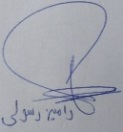 رامین رسولی